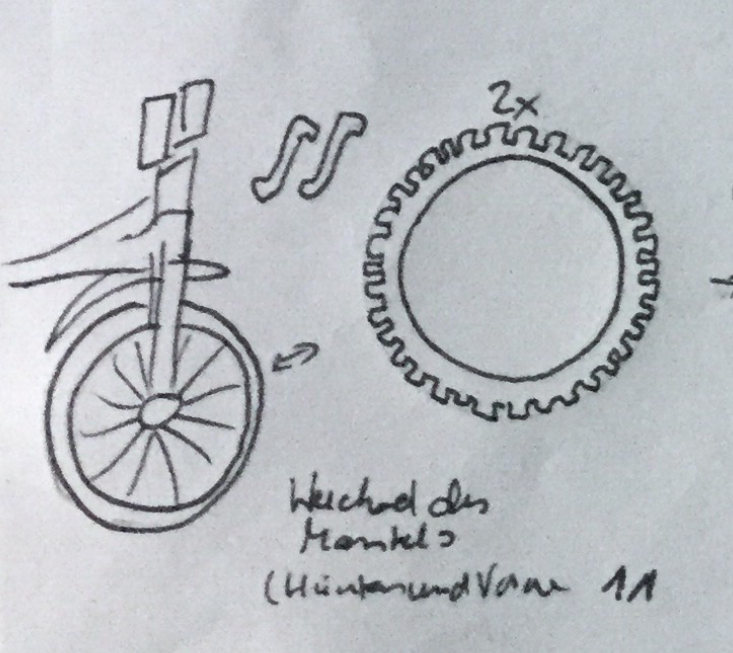 2x
Wechsel des
Mantels
(Hinten und Vorne